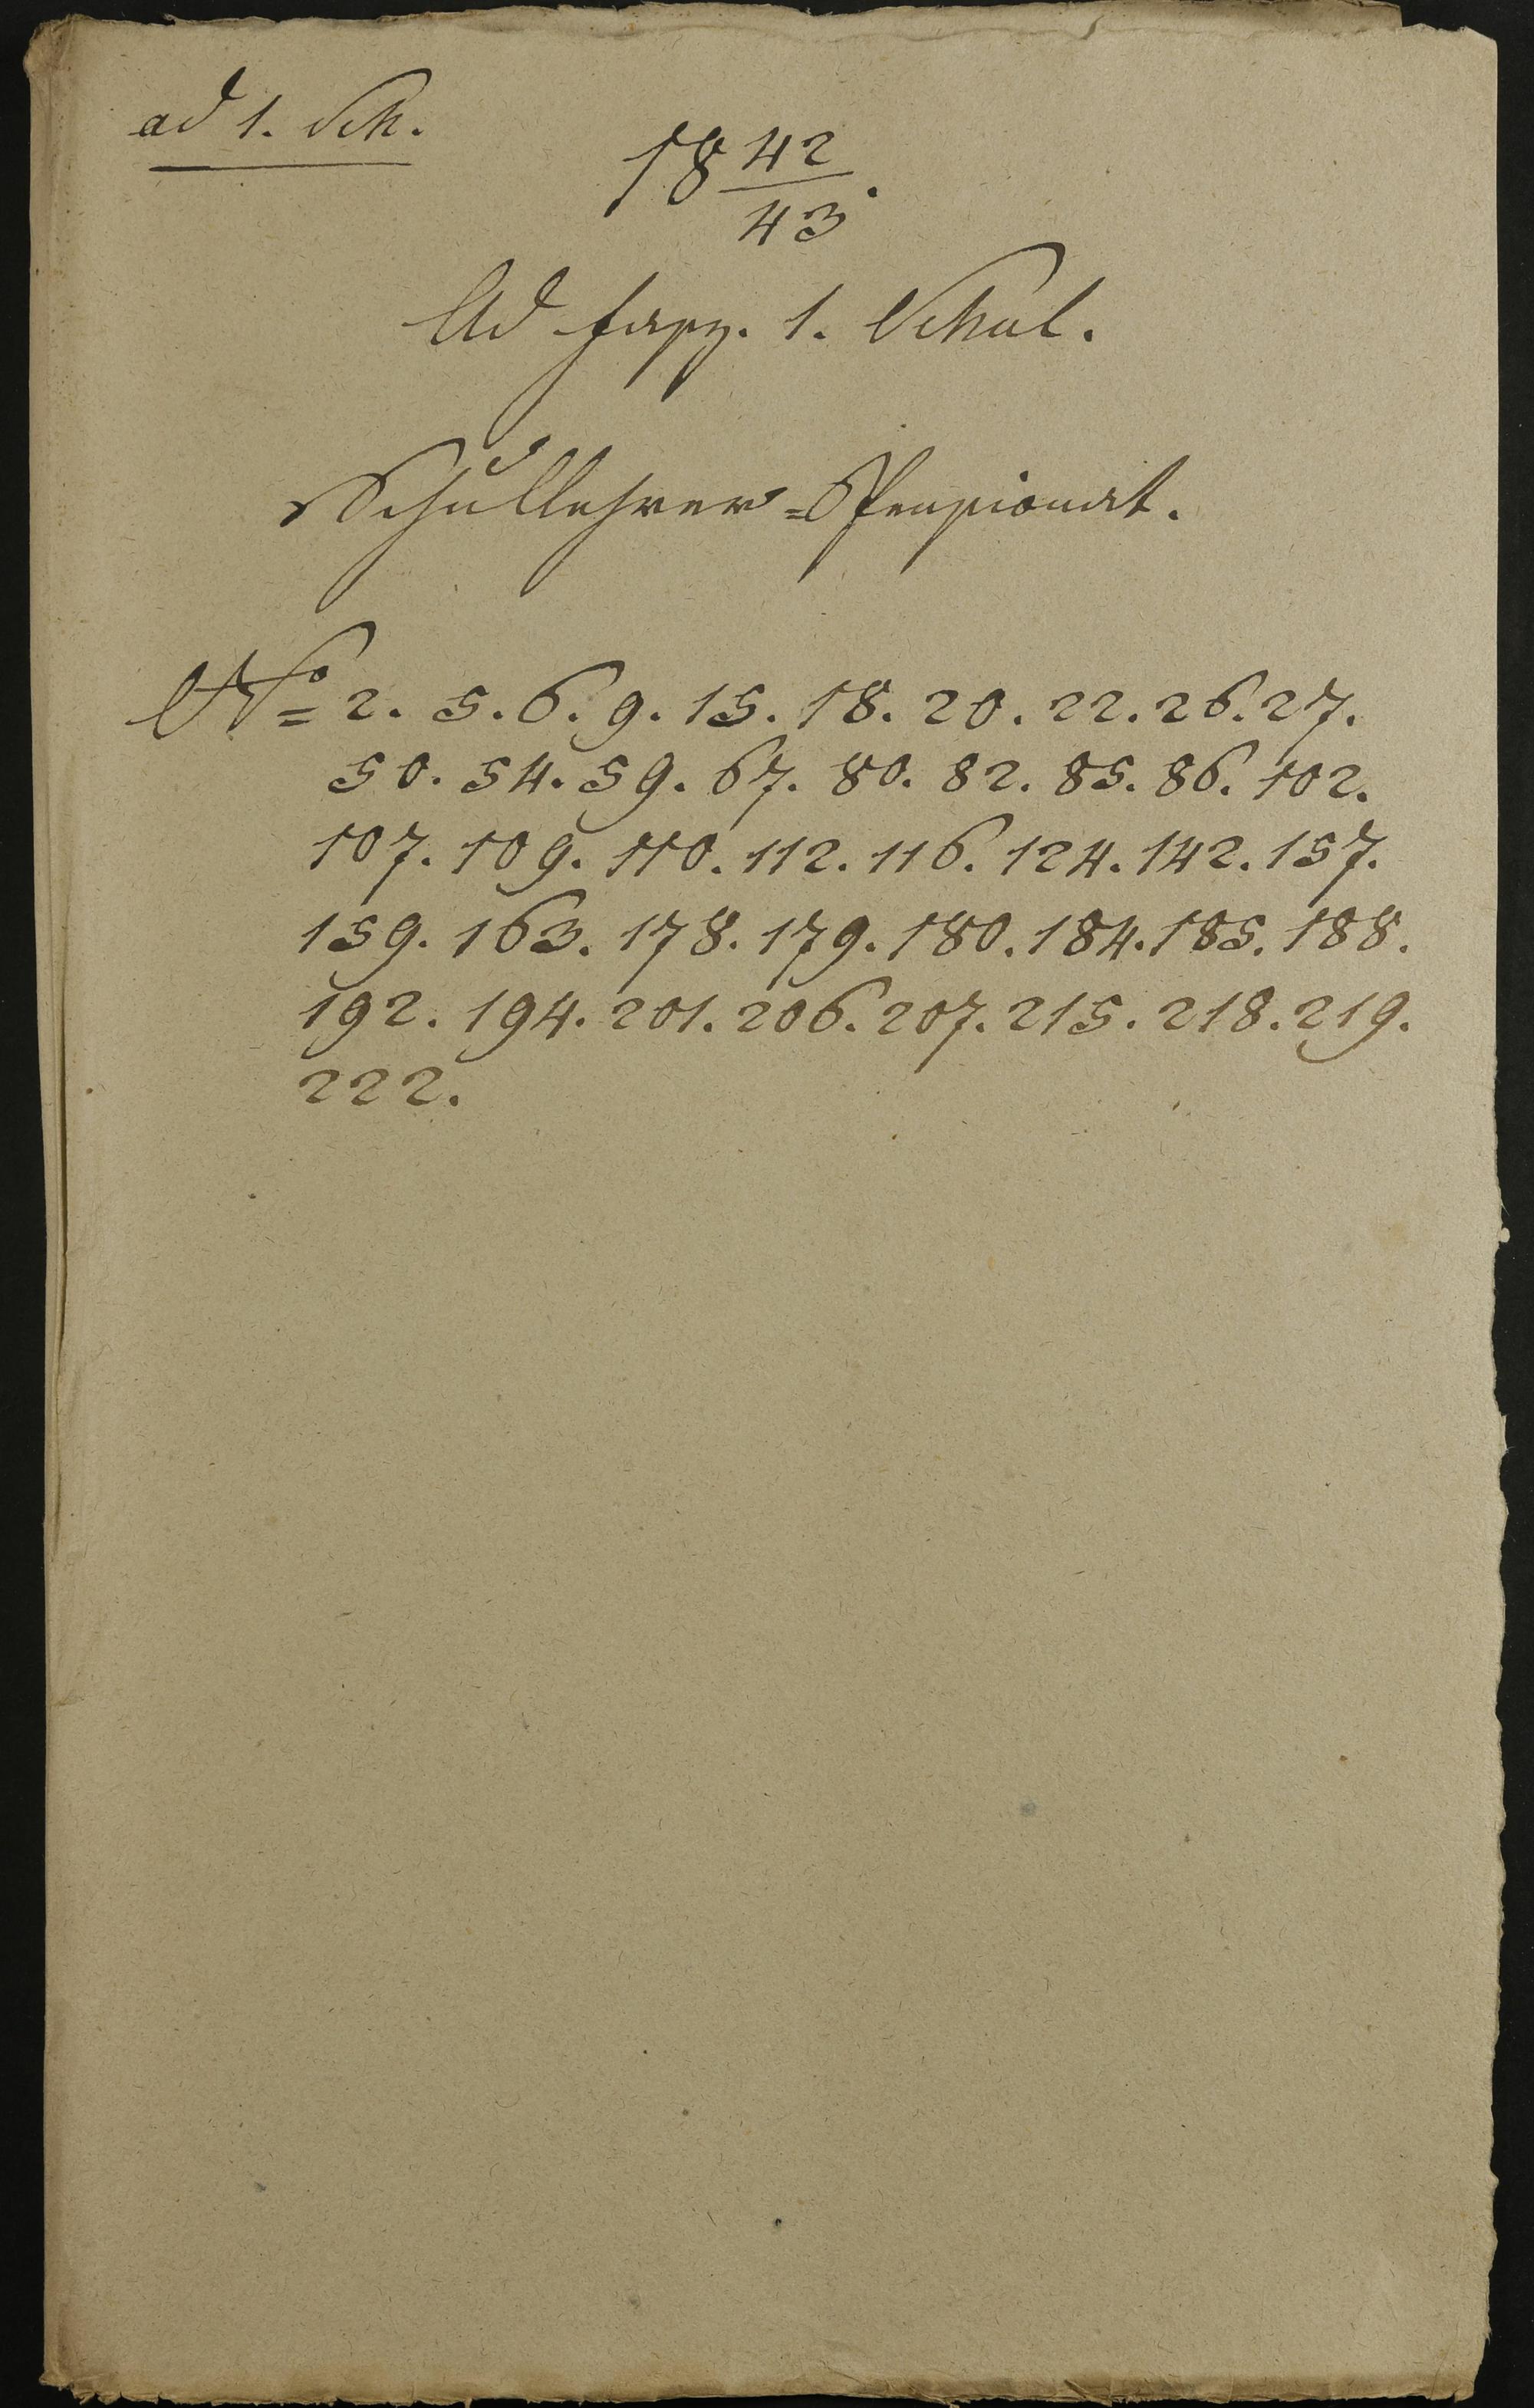 ad 1. Sch.
18 42/43.
Ad fasz. 1. Schul.
Schullehrer=Pensionat.
No 2. 5. 6. 9. 15. 18. 20. 22. 26. 27.
50. 54. 59. 67. 80. 82. 85. 86. 102.
107. 109. 110. 112. 116. 124. 142. 157.
159. 163. 178. 179. 180. 184. 185. 188.
192. 194. 201. 206. 207. 215. 218. 219.
222.